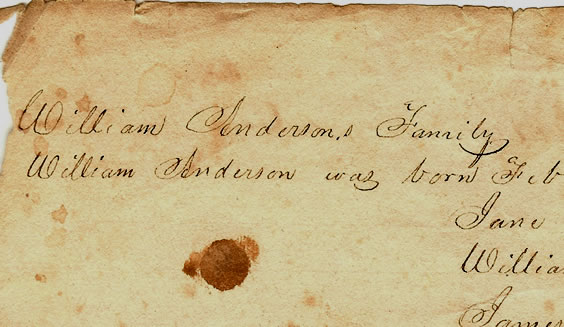 William Anderson,s Family
William Anderson was born Feb
Jane
Willia
James